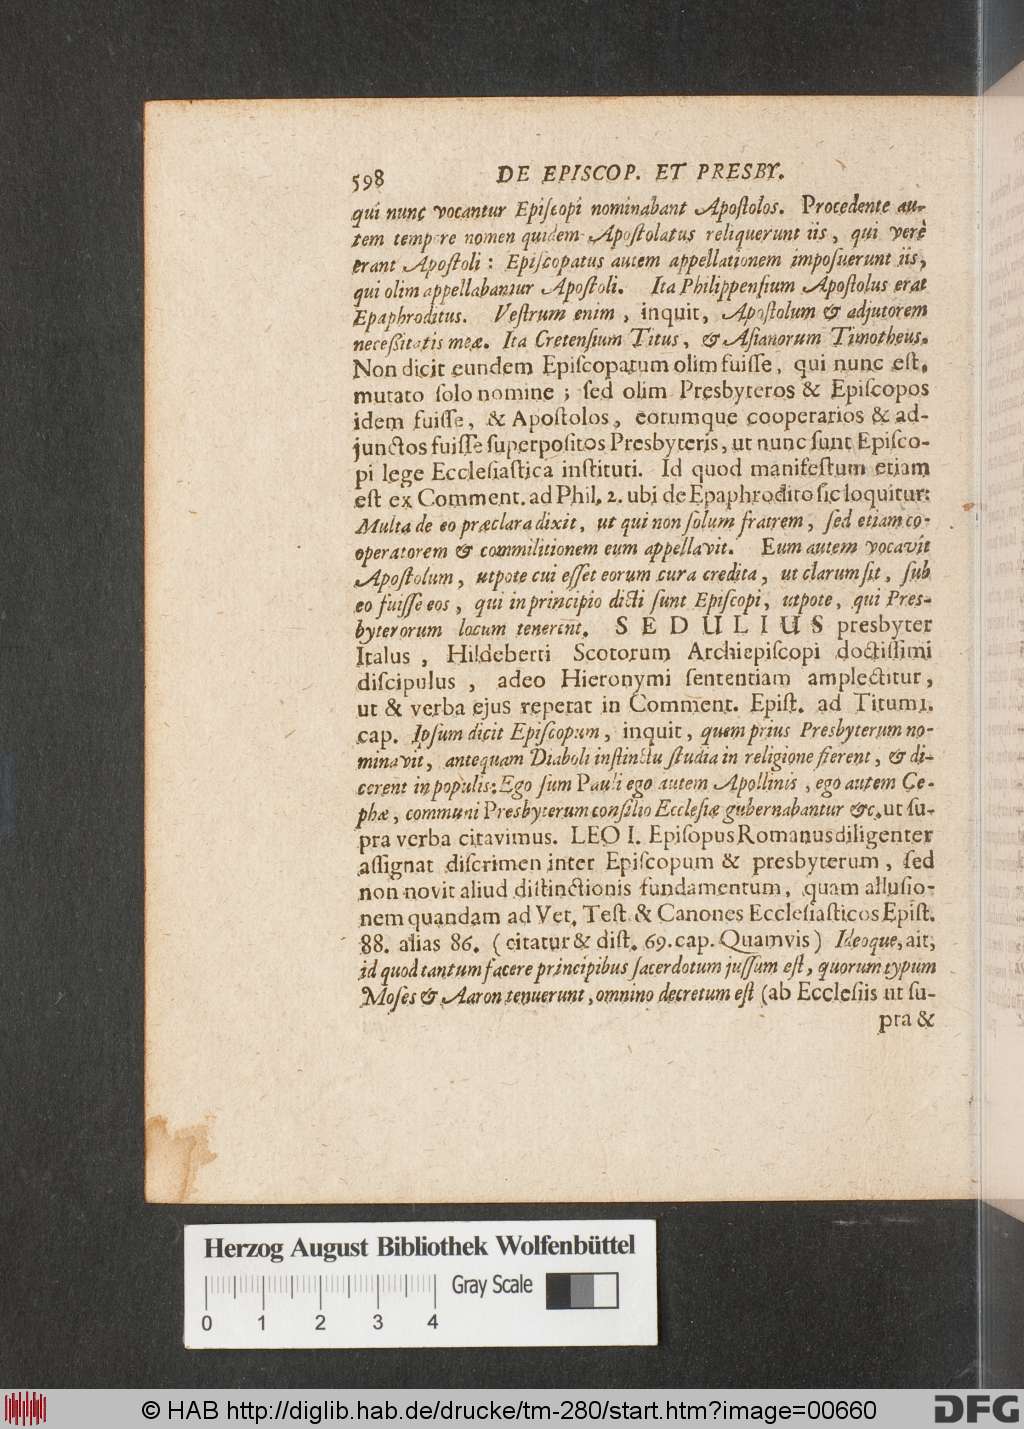 598 DE EPISCOP. ET PRESBY.
qui nunc vocantur Epiſcopi nominabant Apoſtolos. Procedente au-
tem tempore nomen quidem Apoſtolatus reliquerunt iis, qui verè
erant Apoſtoli: Epiſcopatus autem appellationem impoſuerunt iis,
qui olim appellabantur Apoſtoli. Ita Philippenſium Apoſtolus erat
Epaphroditus. Veſtrum enim, inquit, Apoſtolum & adjutorem
neceßitatis meæ. Ita Cretenſium Titus, & Aſianorum Timotheus.
Non dicit eundem Epiſcopatum olim fuiſſe, qui nunc eſt,
mutato ſolo nomine; ſed olim Presbyteros & Epiſcopos
idem fuiſſe, & Apoſtolos, eorumque cooperarios & ad-
junctos fuiſſe ſuperpoſitos Presbyteris, ut nunc ſunt Epiſco-
pi lege Eccleſiaſtica inſtituti. Id quod manifeſtum etiam
eſt ex Comment. ad Phil. 2. ubi de Epaphrodito ſic loquitur:
Multa de eo præclara dixit, ut qui non ſolum fratrem, ſed etiam co-
operatorem & commilitionem eum appellavit. Eum autem vocavit
Apoſtolum, utpote cui eſſet eorum cura credita, ut clarum ſit, ſub
eo fuiſſe eos, qui in principio dicti ſunt Epiſcopi, utpote, qui Pres-
byterorum locum tenerent. SEDULIUS presbyter
Italus, Hildeberti Scotorum Archiepiſcopi doctiſſimi
diſcipulus, adeo Hieronymi ſententiam amplectitur,
ut & verba ejus repetat in Comment. Epiſt. ad Titum 1.
cap. Ipſum dicit Epiſcopum, inquit, quem prius Presbyterum no-
minavit, antequam Diaboli inſtinctu ſtudia in religione fierent, & di-
cerent in populis: Ego ſum Pauli ego autem Apollinis, ego autem Ce-
phæ, communi Presbyterum conſilio Eccleſiæ gubernabantur &c. ut ſu-
pra verba citavimus. LEO I. Epiſopus Romanus diligenter
aſſignat diſcrimen inter Epiſcopum & presbyterum, ſed
non novit aliud diſtinctionis fundamentum, quam alluſio-
nem quandam ad Vet. Teſt. & Canones Eccleſiaſticos Epiſt.
88. alias 86. (citatur & diſt. 69. cap. Quamvis) Ideoque, ait,
id quod tantum facere principibus ſacerdotum juſſum eſt, quorum typum
Moſes & Aaron tenuerunt, omnino decretum eſt (ab Eccleſiis ut ſu-
pra &
Herzog August Bibliothek Wolfenbüttel
Gray Scale
0 1 2 3 4
© HAB http://diglib.hab.de/drucke/tm-280/start.htm?image=00660
DFG